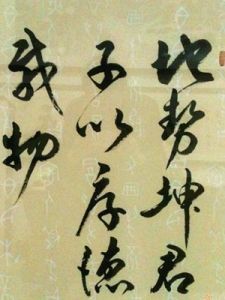 地势坤君
子以厚德
载物